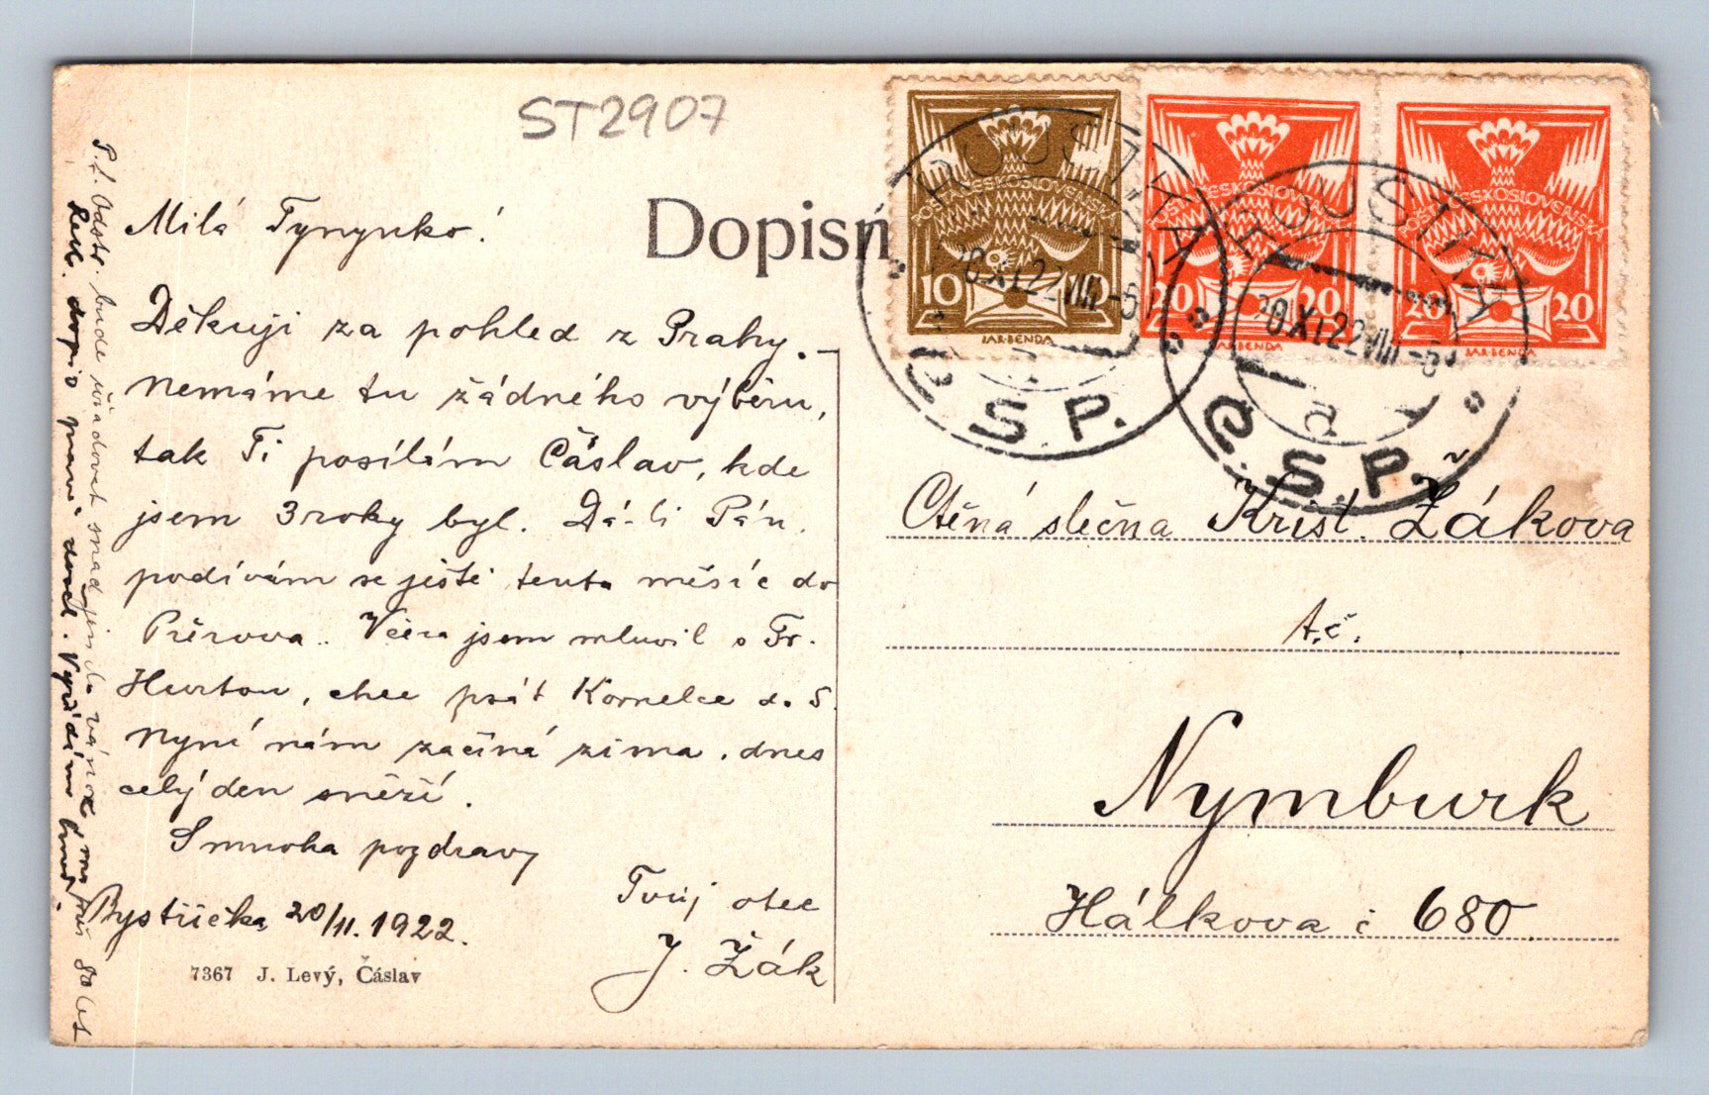 ST2907
Dopisn
Milá Tynynko!
Děkuji za pohled z Prahy. –
Nemáme tu žádného výběru,
tak Ti posílám Čáslav, kde
jsem 3 roky byl. Dá-li Pán.
podívám se ještě tento měsíc do
Přerova.. Včera jsem mluvil s Fr.
Hurtou, chce psát Kornelce d. S.
Nyní nám začíná zima. dnes
celý den sněží.
S mnoha pozdravy
Tvůj otec
J. Žák
Bystřička 20/11. 1922.
7367 J. Levý, Čáslav
P.S. bude úřadovat snad jen do vánoc
dopis
10
ČESKOSLOVENSKÁ
JAR. BENDA
20 20
POŠTA ČESKOSLOVENSKÁ
JAR. BENDA
20 20
POŠTA ČESKOSLOVENSKÁ
JAR. BENDA
ROUSTKA
20 XI 22 VIII -5
Č.S.P.
ROUSTKA
20 XI 22 VIII -5
a
Č.S.P.
Ctěná slečna Krist. Žákova
t.č.
Nymburk
Hálkova č 680